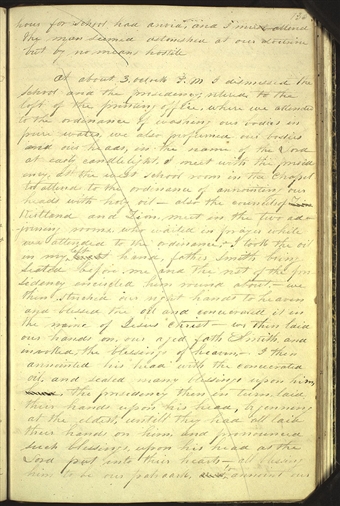 136
hour for school had arrived and I must attend
the man seemed astonished at our doctrine
but by no means hostile
At about 3, oclock P.M I dismissed the
school and the presidency, retired to the
loft of the printing office, where we attended
to the ordinance of washing our bodies in
pure water, we also perfumed our bodies
and our heads, in the name of the Lord
at early candlelight, I meet with the presid
ency, at the west school room in the Chapel
to attend to the ordinance of annointing our
heads with holy oil— also the councils of
Kirtland and Zion, meet in the two ad-
joining rooms, who waited in prayer while
we attended to the ordinance,— I took the oil
in my left hand, father Smith being
seated before me and the rest of the pre
sidency encircled him round about.— we
then streched our right hands to heaven
and blessed the oil and concecrated it in
the name of Jesus Christ— we then laid
our hands on, our aged fath Smith, and
invoked, the blessings of heaven,— I then
annointed his head with the concecrated
oil, and sealed many blessings upon him,
the presidency then in turn, laid
their hands upon his head, begenning
at the eldest, untill they had all laid
their hands on him, and pronounced
such blessings, upon his head as the
Lord put into their hearts— all blessing
him to be our patraark, to annoint our